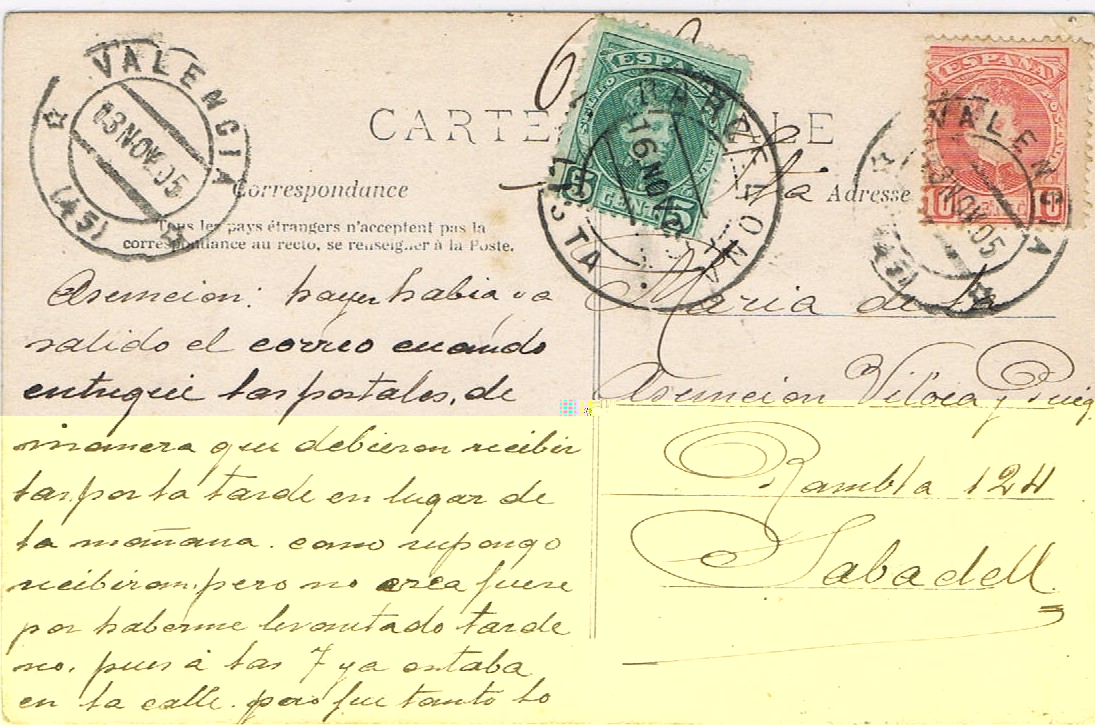 VALENCIA
13 NOV. 05
(45)
CARTE
LE
ESPAÑA
5 CENT 5
16 NOV
LISTA
ESPAÑA
10 CENT 10
VALENCIA
13 NOV. 05
(45)
Correspondance
Tous les pays étrangers n'acceptent pas la
correspondance au recto, se renseigner à la Poste.
Adresse
Asuncion: hayer habia ya
salido el correo cuando
entregué las postales, de
manera que debieron recibir
las por la tarde en lugar de
la mañana. como supongo
recibiran, pero no crea fuese
por haberme levantado tarde
no, pues á las 7 ya estaba
en la calle. pero fue tanto lo
Sta
Maria de la
Asuncion Viloca y Puig
Rambla 124
Sabadell